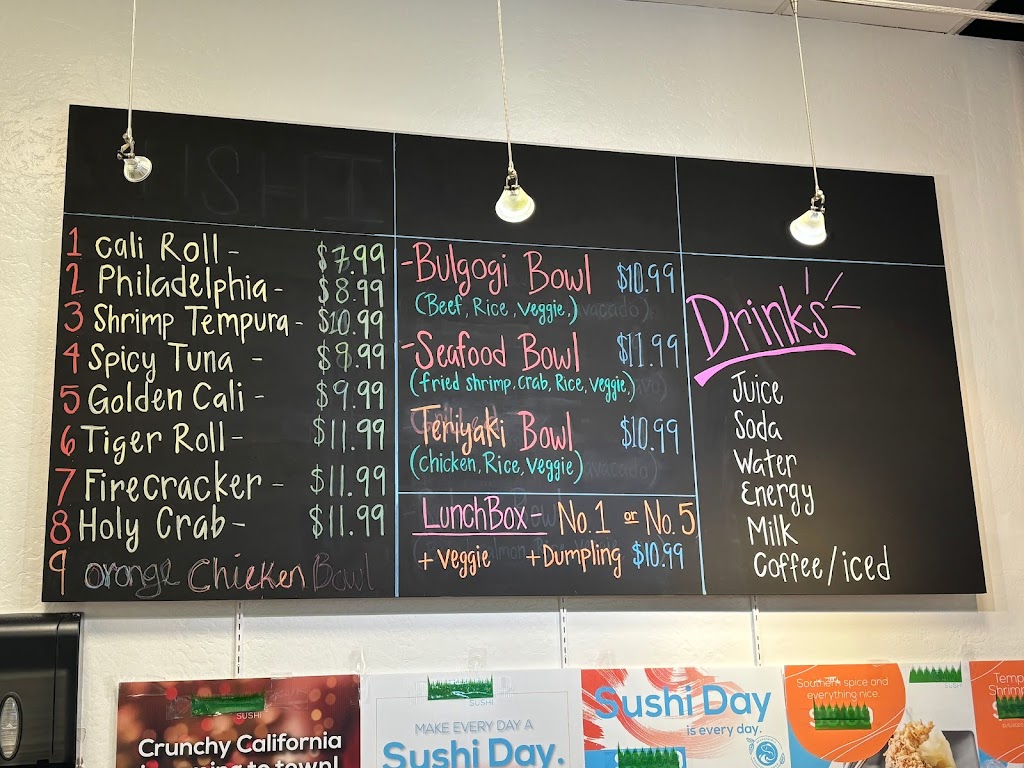 SHI
1 Cali Roll - $7.99
2 Philadelphia - $8.99
3 Shrimp Tempura - $10.99
4 Spicy Tuna - $8.99
5 Golden Cali - $9.99
6 Tiger Roll - $11.99
7 Firecracker - $11.99
8 Holy Crab - $11.99
9 orange Chicken Bowl
-Bulgogi Bowl $10.99
(Beef, Rice, veggie,)
-Seafood Bowl $11.99
(fried shrimp, crab, Rice, veggie,)
Teriyaki Bowl $10.99
(chicken, Rice, veggie)
LunchBox - No.1 or No.5
+veggie +Dumpling $10.99
Drinks
Juice
Soda
Water
Energy
Milk
Coffee/iced
SUSHI
Crunchy California
SUSHI
MAKE EVERY DAY A
Sushi Day.
Sushi Day
is every day.
Southern spice and
everything nice.
SUSHI